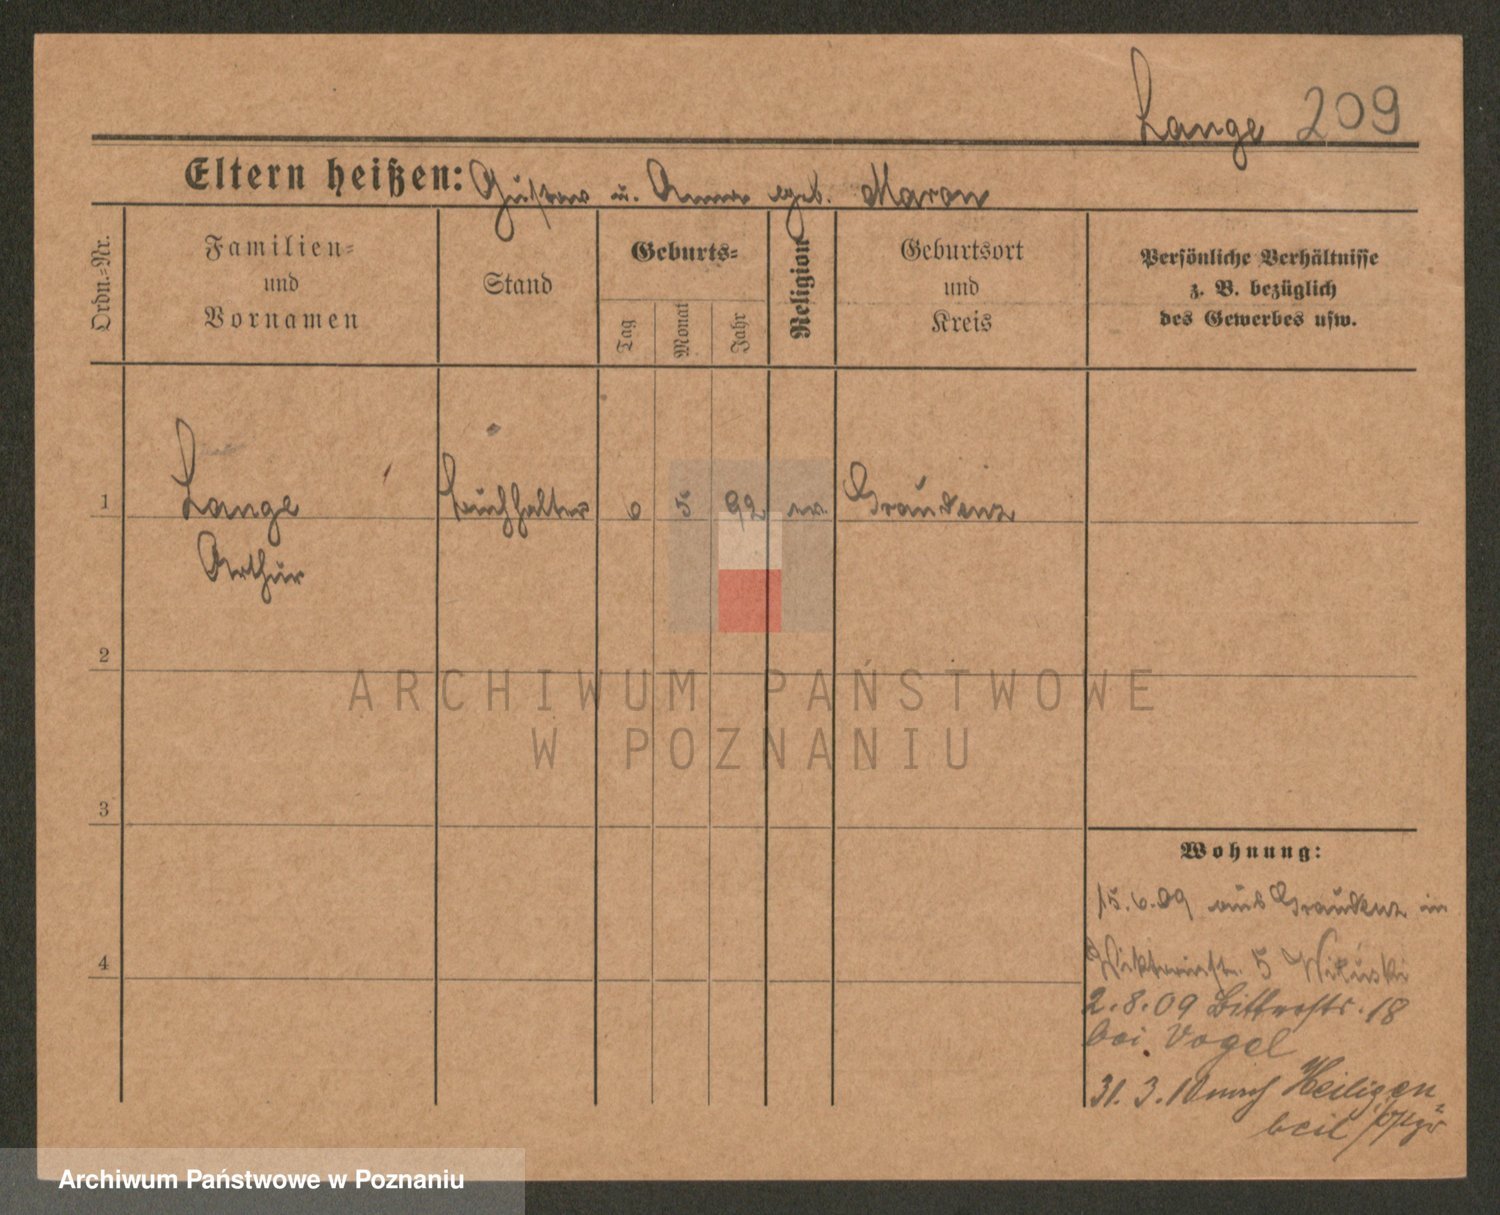 Lange 209
Eltern heißen: Gustav u. Anna geb. Maron
Ordn.-Nr.
Familien-
und
Vornamen
Stand
Geburts-
Tag
Monat
Jahr
Religion
Geburtsort
und
Kreis
Persönliche Verhältnisse
z. B. bezüglich
des Gewerbes usw.
1 Lange Buchhalter 6 5 92 ev. Graudenz
Arthur
2
ARCHIWUM PAŃSTWOWE
W POZNANIU
3
Wohnung:
15.6.09 aus Graudenz in
5
4
2.8.09 18
bei Vogel
31.3.10 nach Heiligen
beil
Archiwum Państwowe w Poznaniu